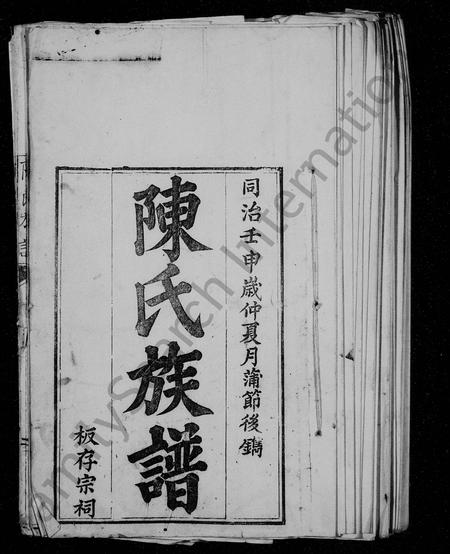 同治壬申歲仲夏月蒲節後鐫
陳氏族譜
板存宗祠
FamilySearch International